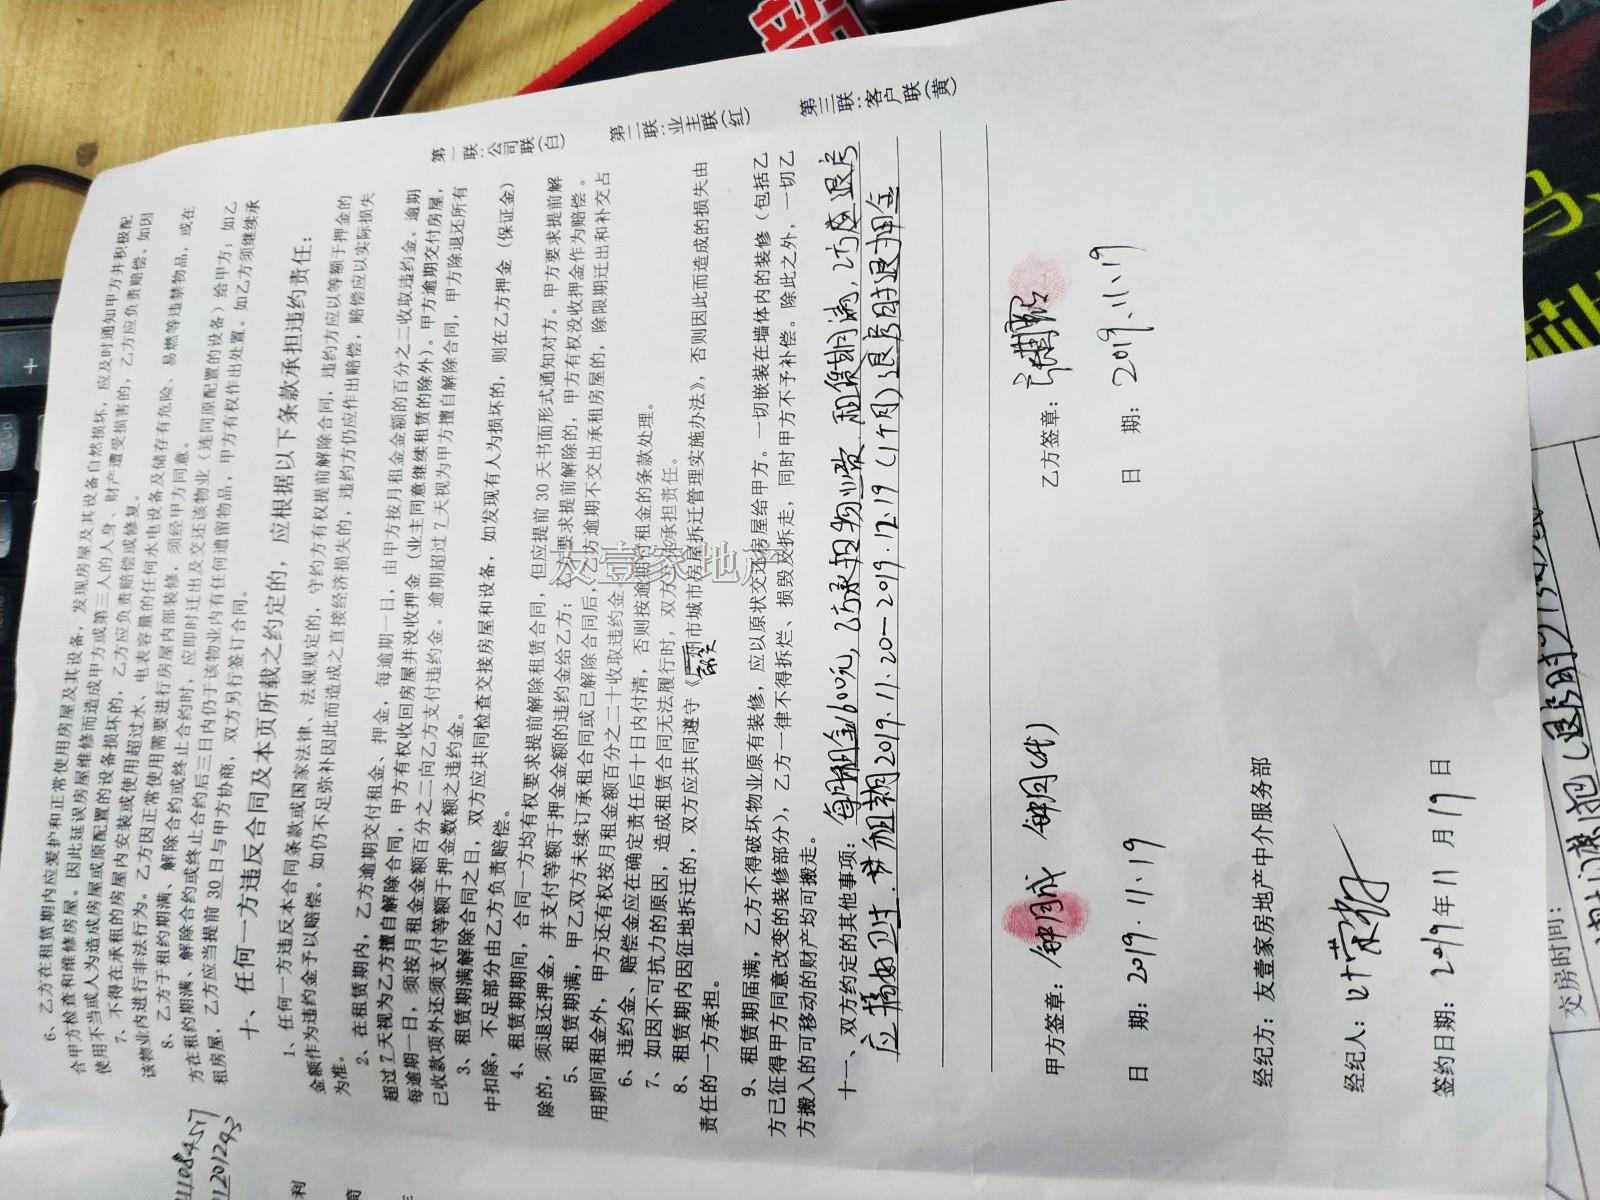 6、乙方在租赁期内应爱护和正常使用房屋及其设备，发现房屋及其设备自然损坏，应及时通知甲方并积极配
合甲方检查和维修房屋。因此延误房屋维修而造成甲方或第三人的人身、财产遭受损害的，乙方应负责赔偿。如因
使用不当或人为造成房屋或原配置的设备损坏的，乙方应负责赔偿或修复。
7、不得在承租的房屋内安装或使用超过水、电表容量的任何水电设备及储存有危险、易燃等违禁物品，或在
该物业内进行非法行为。乙方因正常使用需要进行房屋内部装修，须经甲方同意。
8、乙方于租约期满、解除合约或终止合约时，应即时迁出及交还该物业（连同原配置的设备）给甲方；如乙
方在租约期满、解除合约或终止合约后三日内仍于该物业内有任何遗留物品，甲方有权作出处置。如乙方须继续承
租房屋，乙方应当提前30日与甲方协商，双方另行签订合同。
十、任何一方违反合同及本页所载之约定的，应根据以下条款承担违约责任：
1、任何一方违反本合同条款或国家法律、法规规定的，守约方有权提前解除合同，违约方应以等额于押金的
金额作为违约金予以赔偿。如仍不足弥补因此而造成之直接经济损失的，违约方仍应作出赔偿，赔偿应以实际损失
为准。
2、在租赁期内，乙方逾期交付租金、押金，每逾期一日，由甲方按月租金金额的百分之二收取违约金。逾期
超过7天视为乙方擅自解除合同，甲方有权收回房屋并没收押金（业主同意继续租赁的除外）。甲方逾期交付房屋，
每逾期一日，须按月租金金额百分之二向乙方支付违约金。逾期超过7天视为甲方擅自解除合同，甲方除退还所有
已收款项外还须支付等额于押金数额之违约金。
3、租赁期满解除合同之日，双方应共同检查交接房屋和设备，如发现有人为损坏的，则在乙方押金（保证金）
中扣除，不足部分由乙方负责赔偿。
4、租赁期期间，合同一方均有权要求提前解除租赁合同，但应提前30天书面形式通知对方。甲方要求提前解
除的，须退还押金，并支付等额于押金金额的违约金给乙方；乙方要求提前解除的，甲方有权没收押金作为赔偿。
5、租赁期满，甲乙双方未续订承租合同或已解除合同后，乙方逾期不交出承租房屋的，除限期迁出和补交占
用期间租金外，甲方还有权按月租金额百分之二十收取违约金。
6、违约金、赔偿金应在确定责任后十日内付清，否则按逾期付租金的条款处理。
7、如因不可抗力的原因，造成租赁合同无法履行时，双方互不承担责任。
8、租赁期内因征地拆迁的，双方应共同遵守《市城市房屋拆迁管理实施办法》，否则因此而造成的损失由
责任的一方承担。
9、租赁期届满，乙方不得破坏物业原有装修，应以原状交还房屋给甲方。一切嵌装在墙体内的装修（包括乙
方已征得甲方同意改变的装修部分），乙方一律不得拆烂、损毁及拆走，同时甲方不予补偿。除此之外，一切乙
方搬入的可移动的财产均可搬走。
十一、双方约定的其他事项：每月租金600元，乙方承担物业费，租赁期满，乙方应退房
应搞好卫生，若租期2019.11.20—2019.12.19（1个月）退房时退押金
甲方签章：钟月成 钟月（代）
日 期：2019.11.19
乙方签章：
日 期：2019.11.19
经纪方：友壹家房地产中介服务部
经纪人：叶荣
签约日期：2019年11月19日
第一联：公司联（白）
第二联：业主联（红）
第三联：客户联（黄）
友壹家地产
交房时间：
201243